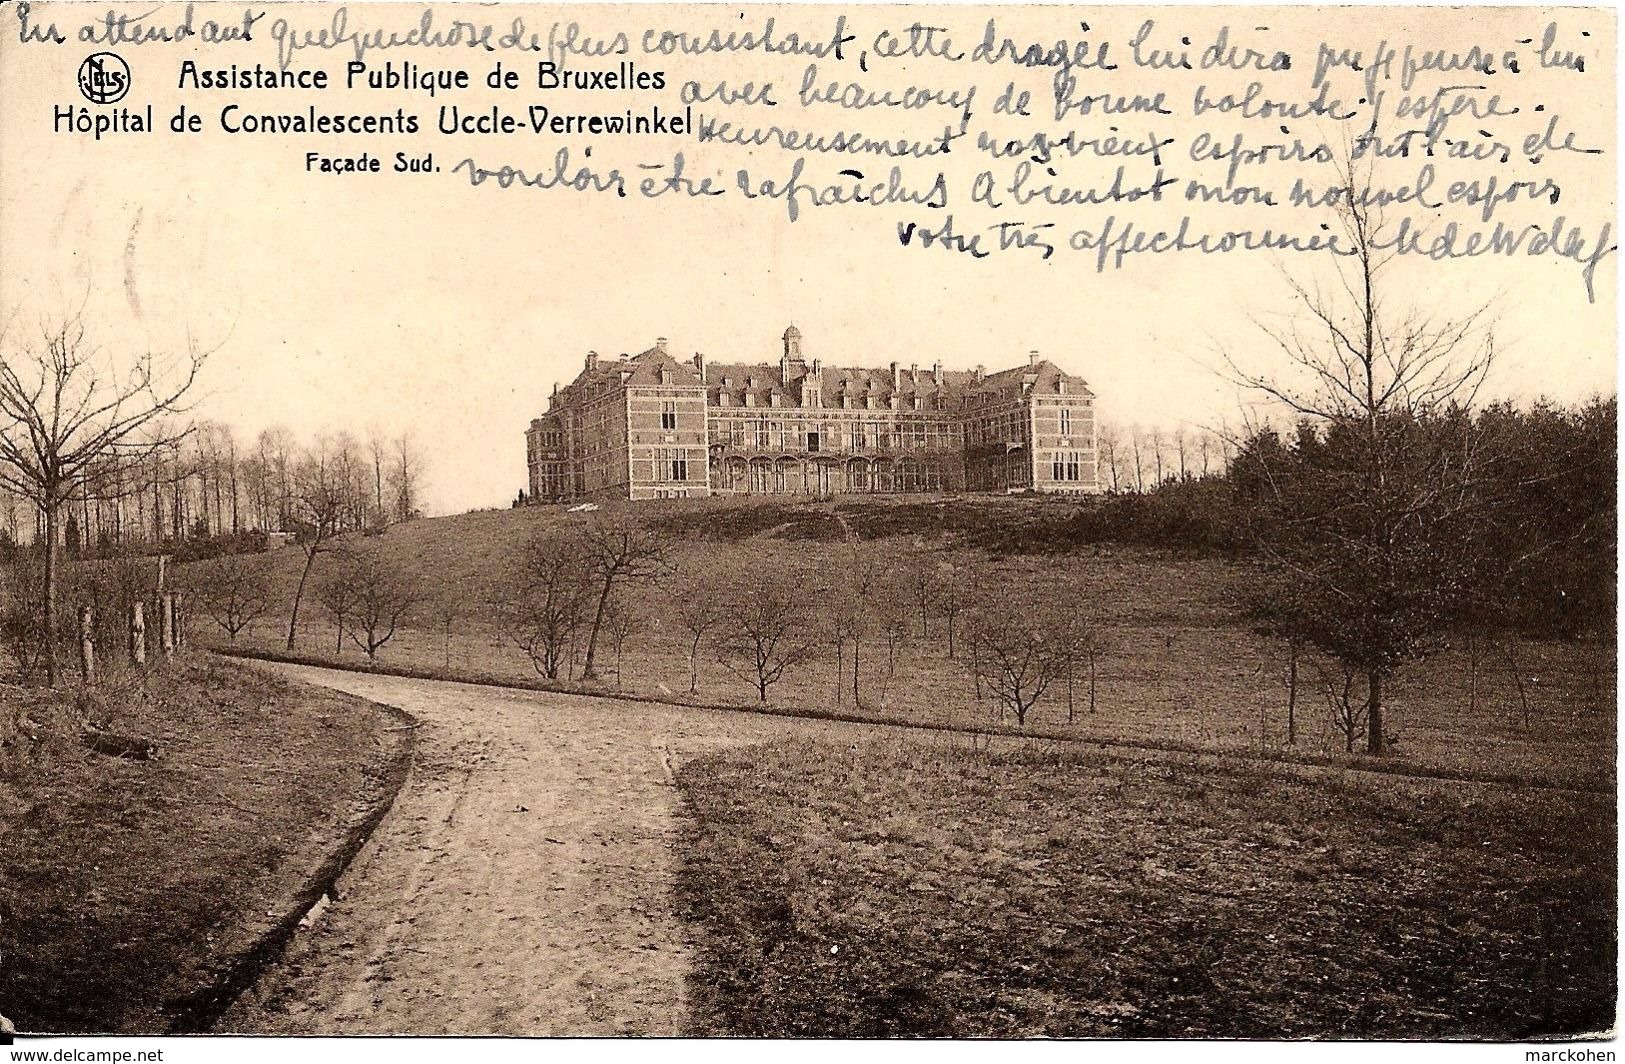 En attendant quelque chose de plus consistant, cette dragée lui dira que je pense à lui
NELS
Assistance Publique de Bruxelles
avec beaucoup de bonne volonté. J'espère.
Hôpital de Convalescents Uccle-Verrewinkel
Heureusement nos vieux espoirs ont l'air de
Façade Sud.
vouloir être rafraîchis A bientot mon nouvel espoir
votre très affectionnée
delcampe.net
marckohen